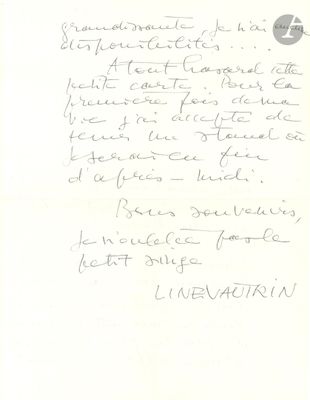 grandissante, je n'ai aucune
disponibilités....
A tout hasard cette
petite carte. Pour la
première fois de ma
vie j'ai accepté de
tenir un stand où
je serai en fin
d'après-midi.
Bons souvenirs,
je n'oublie pas le
petit singe
LINE VAUTRIN